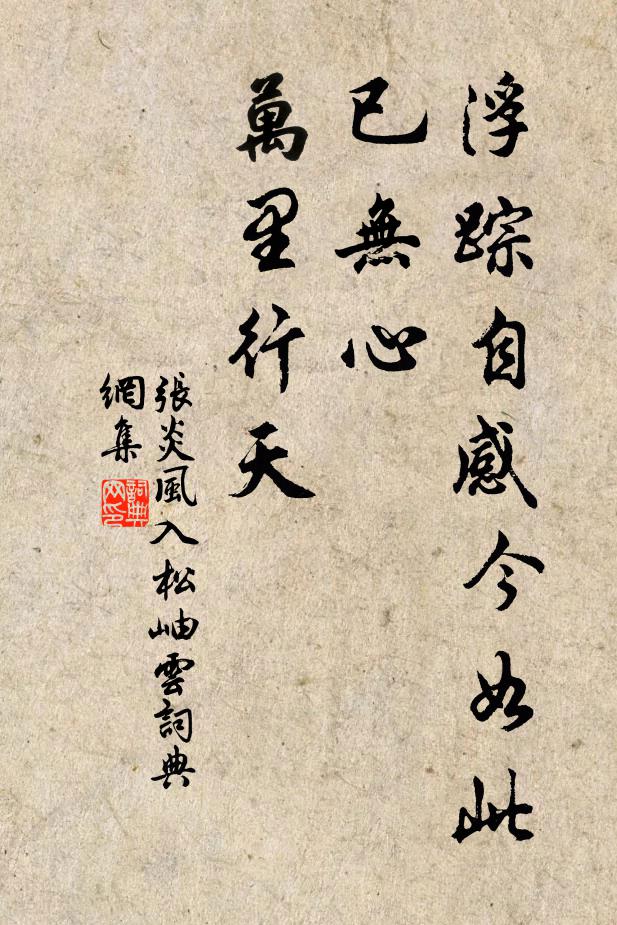 浮踪自感今如此
已無心
萬里行天
張炎風入松岫雲詞典
網集
詞典
网印